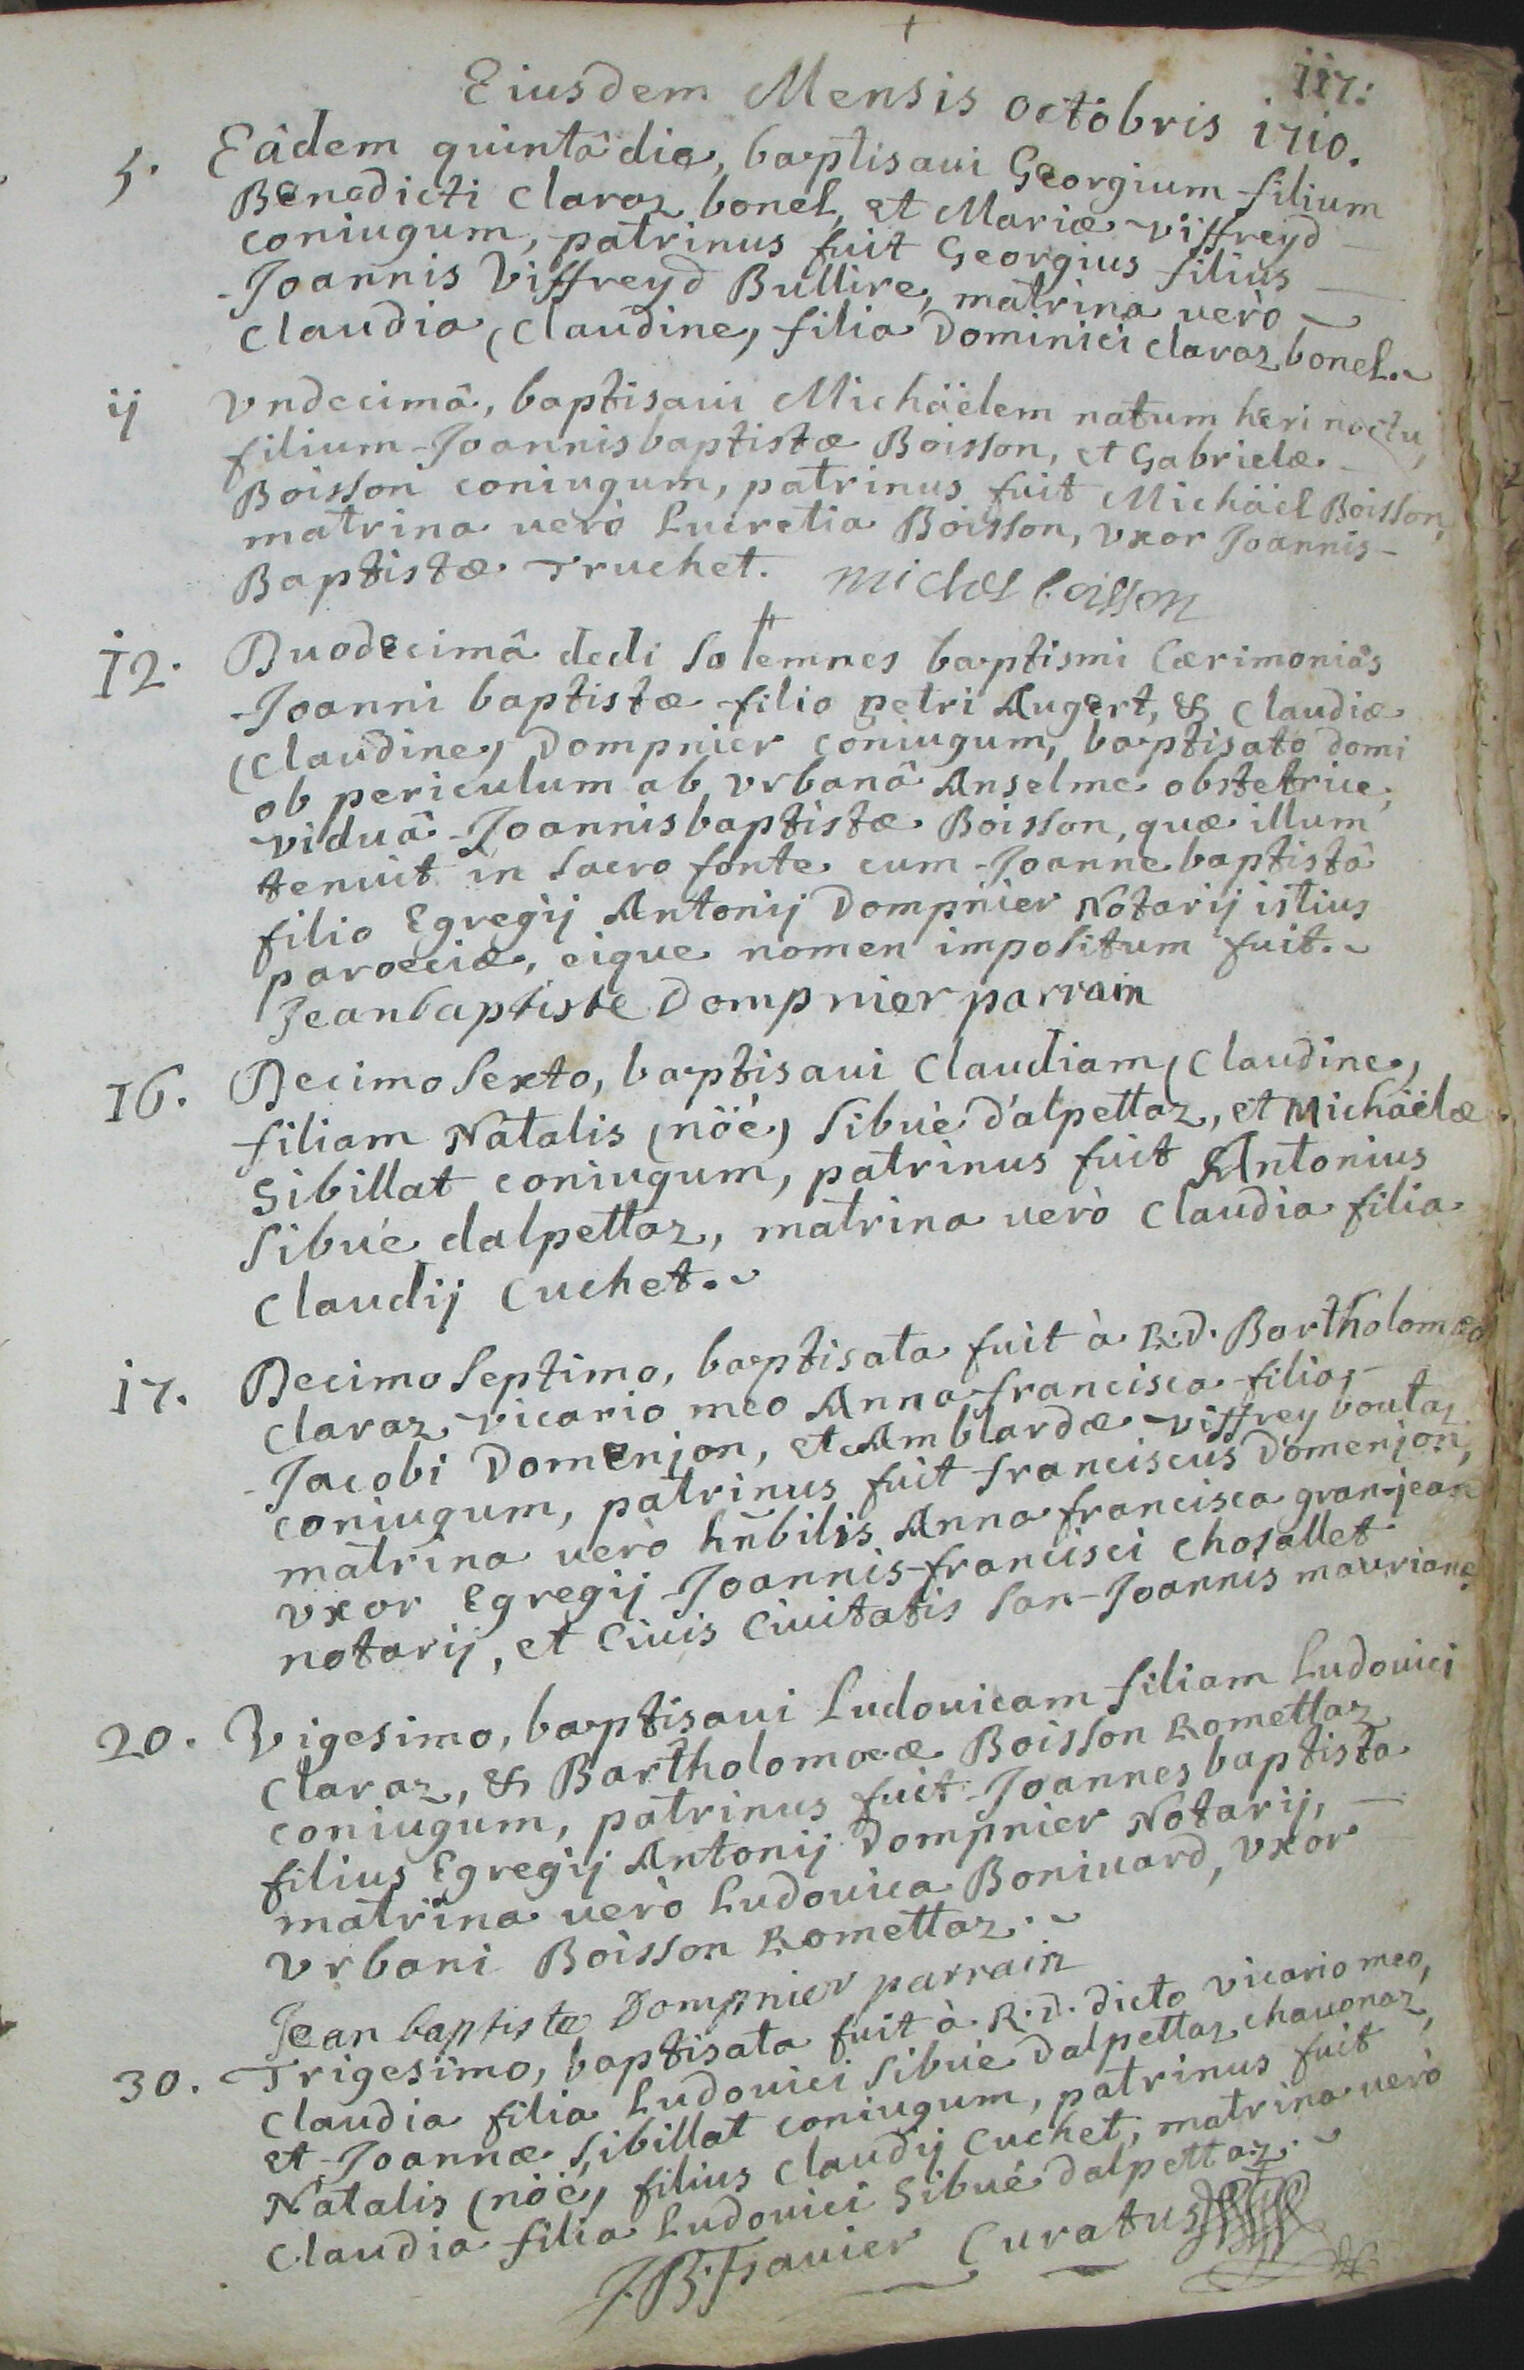 117.
Eiusdem Mensis octobris 1710.
5. Eâdem quintâ die, baptisaui Georgium filium
Benedicti Claraz bonel, et Mariæ Viffreyd
coniugum, patrinus fuit Georgius filius
Joannis Viffreyd Bullire, matrina verò
Claudia (Claudine) filia Dominici claraz bonel.
ij Vndecimâ, baptisaui Michäelem natum heri noctu,
filium Joannisbaptistæ Boisson, et Gabrielæ
Boisson coniugum, patrinus fuit Michäel Boisson,
matrina uerò Lucretia Boisson, vxor Joannis-
Baptistæ Truchet. michel boisson
12. Duodecimâ dedi solemnes baptismi Cærimoniâs
Joanni baptistæ filio petri Augert, & Claudiæ
(Claudine) Dompnier coniugum, baptisato domi
ob periculum ab vrbanâ Anselme obstetrice,
viduâ Joannisbaptistæ Boisson, quæ illum
tenuit in sacro fonte cum Joanne baptistâ
filio Egregij Antonij Dompnier Notarij istius
parœciæ, eique nomen impositum fuit.
Jeanbaptiste Dompnier parrain
16. Decimo sexto, baptisaui Claudiam (Claudine)
filiam Natalis (nöé) Sibüé d'alpettaz, et Michäelæ
Sibillat coniugum, patrinus fuit Antonius
Sibüé dalpettaz, matrina uerò Claudia filia
Claudij Cuchet.
17. Decimo septimo, baptisata fuit à R.D. Bartholomæo
Claraz vicario meo Anna-francisca filia
Jacobi Domenjon, et Amblardæ Viffrey boutaz
coniugum, patrinus fuit franciscus Domenjon,
matrina uerò hnbilis Anna francisca gran-jean
vxor Egregij Joannis-francisci chosallet
notarij, et Ciuis Ciuitatis San-Joannis maurianæ
20. Vigesimo, baptisaui Ludouicam filiam Ludouici
Claraz, & Bartholomææ Boisson Romettaz
coniugum, patrinus fuit Joannes baptista
filius Egregij Antonij Dompnier Notarij,
matrina uerò Ludouica Boniuard, vxor
Vrbani Boisson Romettaz.
Jean baptiste Dompnier parrain
30. Trigesimo, baptisata fuit à R.D. dicto vicario meo,
Claudia filia Ludouici Sibüé dalpettaz chauonaz,
et Joannæ Sibillat coniugum, patrinus fuit
Natalis (nöé) filius Claudij Cuchet, matrina uerò
Claudia filia Ludouici Sibüé dalpettaz.
Curatus